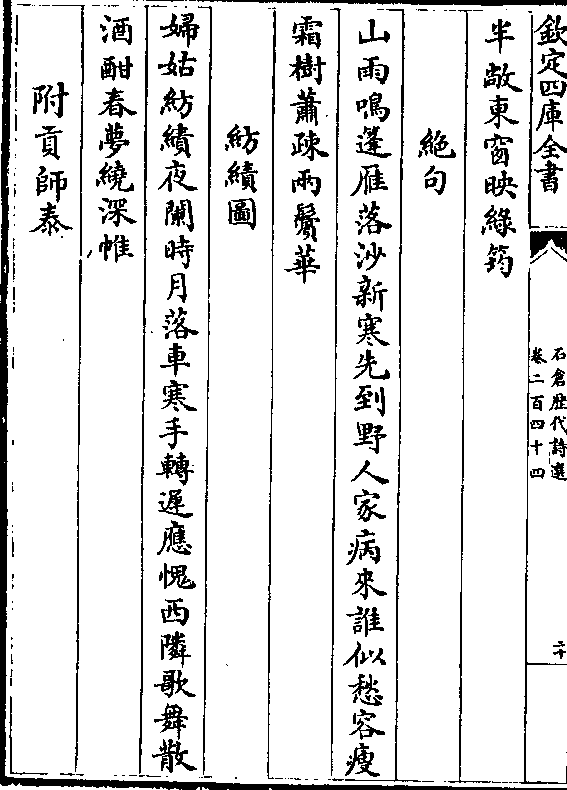 欽定四庫全書
石倉歴代詩選
卷二百四十四
二十
半敞東窗映綠筠
絶句
山雨鳴蓬雁落沙新寒先到野人家病來誰似愁容瘦
霜樹蕭疎兩鬢華
紡績圖
婦姑紡績夜闌時月落車寒手轉遲應愧西隣歌舞散
酒酣春夢繞深帷
附貢師泰